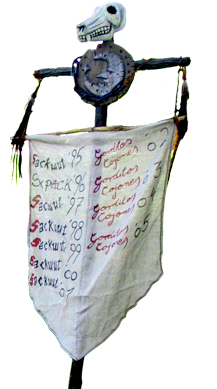 Sackwut '95
Sixpack '96
Sackwut '97
Sackwut '98
Sackwut '99
Sackwut 00
Sackwut 01
Gorditos 02
Cojones
Gorditos 03
Cojones
Gorditos 04
Cojones
Gorditos 05
Cojones